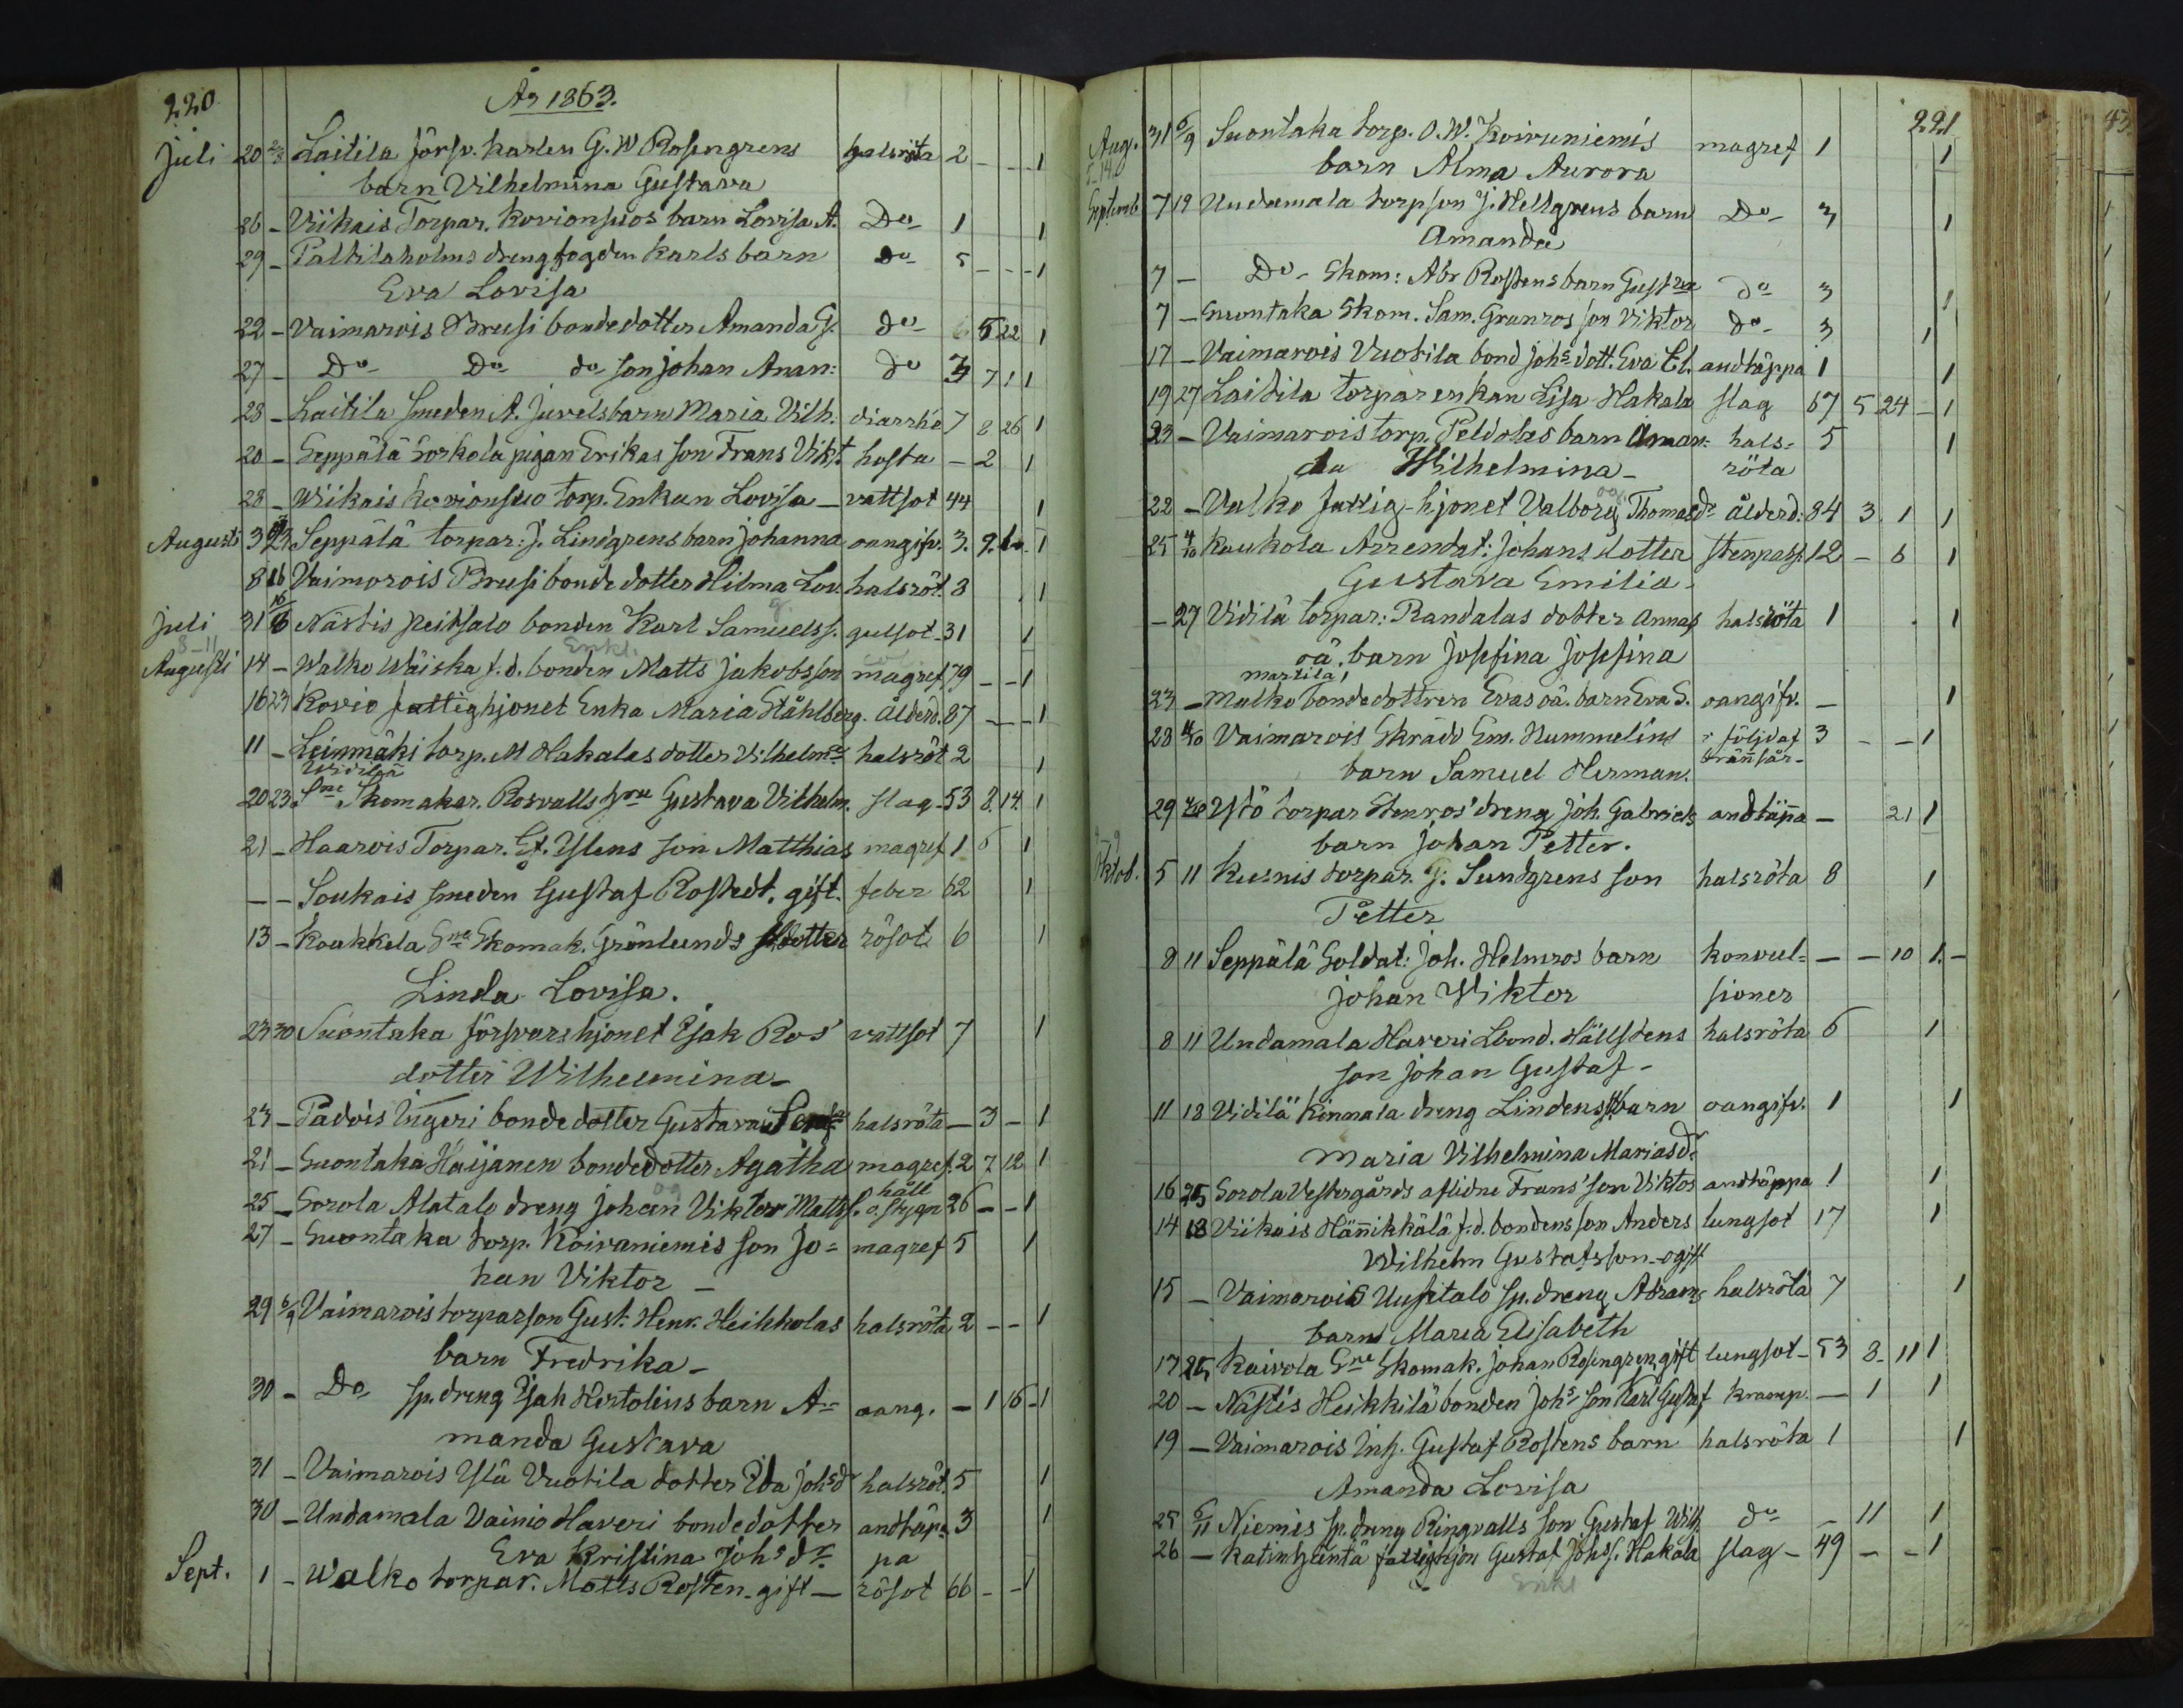 220
År 1863.
Juli 20 Laitila Förp. karlen G. W Rosengrens halsröta 2 - - - 1
barn Vilhelmina Gustava
26 - Viikais Torpar. Kovionsuos barn Lovisa A. Do- 1 1
29 - Paltilaholms drengfogden Karls barn do- 5 - - - 1
Eva Lovisa
22 - Vaimarois Brusi bondedotter Amanda G. do- 5 22 1
27 - Do- Do- do- son Johan Anan: do 3 7 1 1
28 - Laitila smeden A. Juvels barn Maria Vilh. diarrhé 7 8 26 1
20 - Seppälä Sorkola pigan Erikas son Frans Vikt. hosta - 2 1
28 - Wiikais Kovionsuo torp. Enkan Lovisa - vattsot 44 1
Augusti 3 23 Seppälä torpar: J. Lindgrens barn Johanna oangifv. 3. 9. 1
8 16 Vaimorois Brusi bonde dotter Hilma Lov. halsröt. 3 1
Juli 31 16/8 Nästis Peitsalo bonden Karl Samuelss. gulsot - 31 1
8-11
g.
Enkl.
Augusti 14 - Walko Wäiska f.d. bonden Matts Jakobsson magref 79 - - 1
16 23 Kovio fattighjonet Enka Maria Ståhlberg. Ålderd. 87 - - - 1
11 - Leinmäki torp. M Hakalas dotter Vilhelma halsröt 2 1
Widilän
20 23 Sne Skomakar. Rosvalls hru Gustava Vilhelm. slag - 53 8. 14. 1
21 - Haarois Torpar. Gt. Ylens son Matthias magref 1 6 1
- - Soukais smeden Gustaf Rostedt. gift. feber 62 1
13 - Koukkela Sne Skomak. Grönlunds dotter rösot 6 1
Linda Lovisa.
23 30 Suontaka försvarshjonet Isak Ros' vattsot 7 1
dotter Wilhelmina -
23 - Padois Ingeri bondedotter Gustava halsröta - 3 - 1
21 - Suontaka Häijänen bondedotter Agatha magref. 2 7 12 1
og håll
25 - Sorola Alatalo dreng Johan Viktor Matts. o. stygn 26 - - 1
27 - Suontaka torp. Koivaniemis son Jo= magref 5 1
han Viktor -
29 6/9 Vaimarois torparson Gust. Henr. Heikkolas halsröta 2 - - 1
barn Fredrika -
30 - Do- sp. dreng Isak Hertolins barn A= oang. - 1 16 - 1
manda Gustava
31 - Vaimarois Ylä Vuotila dotter Ida Johsdr halsröt. 5 1
30 - Undamala Vainio Haveri bondedotter andtäp= 3 1
Eva Kristina Johsdr. pa
Sept. 1 - Walko torpar. Matts Rosten - gift - rösot 66 - - 1
221
43
Aug. 31 6/9 Suontaka torp. O.W. Koivuniemis magref 1 1
barn Alma Aurora
5-140
Septemb. 7 19 Undamala torpson J. Hellgrens barn Do- 3 1
Amanda
7 - Do- Skom: Abr Rostens barn Gustva do- 3 1
7 - Suontaka Skom. Sam. Granros son Viktor do- 3 1
17 - Vaimarois Vuotila bond Johs dott. Eva El. andtäppa 1 1
19 27 Laitila torparenkan Lisa Hakala slag 67 5 24 - 1
23 - Vaimarois torp. Peldolas barn Aman- hals- 5 1
da Wilhelmina - röta
og.
22 - Valko fattig-hjonet Valborg Thomasdr ålderd: 84 3. 1 1
25 4/10 Kaukola Arrendat: Johans dotter stenpass. 12 - 6 1
Gustava Emilia -
- 27 Vidilä torpar: Randalas dotter Annas halsröta 1 1
oä. barn Josefina Josefina
Marsila
23 - Malko bondedottren Evas oä. barn Eva S. oangifv. - 1
28 4/10 Vaimarois Skräd. Em. Hummelins följd af 3 - - 1
barn Samuel Herman. brännsår -
29 4/10 Ystö torpar Stenros' dreng Joh. Gabriels andtäppa - 21 1
barn Johan Petter.
Oktob. 5 11 Kusnis torpar. G. Sundgrens son halsröta 8 1
Petter
8 11 Seppälä Soldat: Joh. Helmros barn konvul= - - 10 1. -
Johan Wiktor sioner
8 11 Undamala Haveri Lbond. Hällstens halsröta 6 1
son Johan Gustaf -
11 18 Vidilä Kinnala dreng Lindens barn oangifv. 1 1
Maria Vilhelmina Mariasdr
16 25 Sorola Vestergårds aflidne Frans' son Viktor andtäppa 1 1
14 18 Viikais Hännikkälä f.d. bondens son Anders lungsot 17 1
Wilhelm Gustafsson - ogift
15 - Vaimarois Uusitalo sp. dreng Abrams halsröta 7 1
barn Maria Elisabeth
17 25 Kaivola Sne Skomak. Johan Rosengren gift lungsot - 53 8 - 11 1
20 - Nästis Heikkilä bonden Johs son Karl Gustaf kramp. - 1 1
19 - Vaimarois Inh. Gustaf Rostens barn halsröta 1 1
Amanda Lovisa
25 6/11 Niemis sp. dreng Ringvalls son Gustaf Wilh. do- - 11 1
26 - Katinhäntä fattighjon Gustaf Johss. Hakala slag - 49 - - 1
Enkl